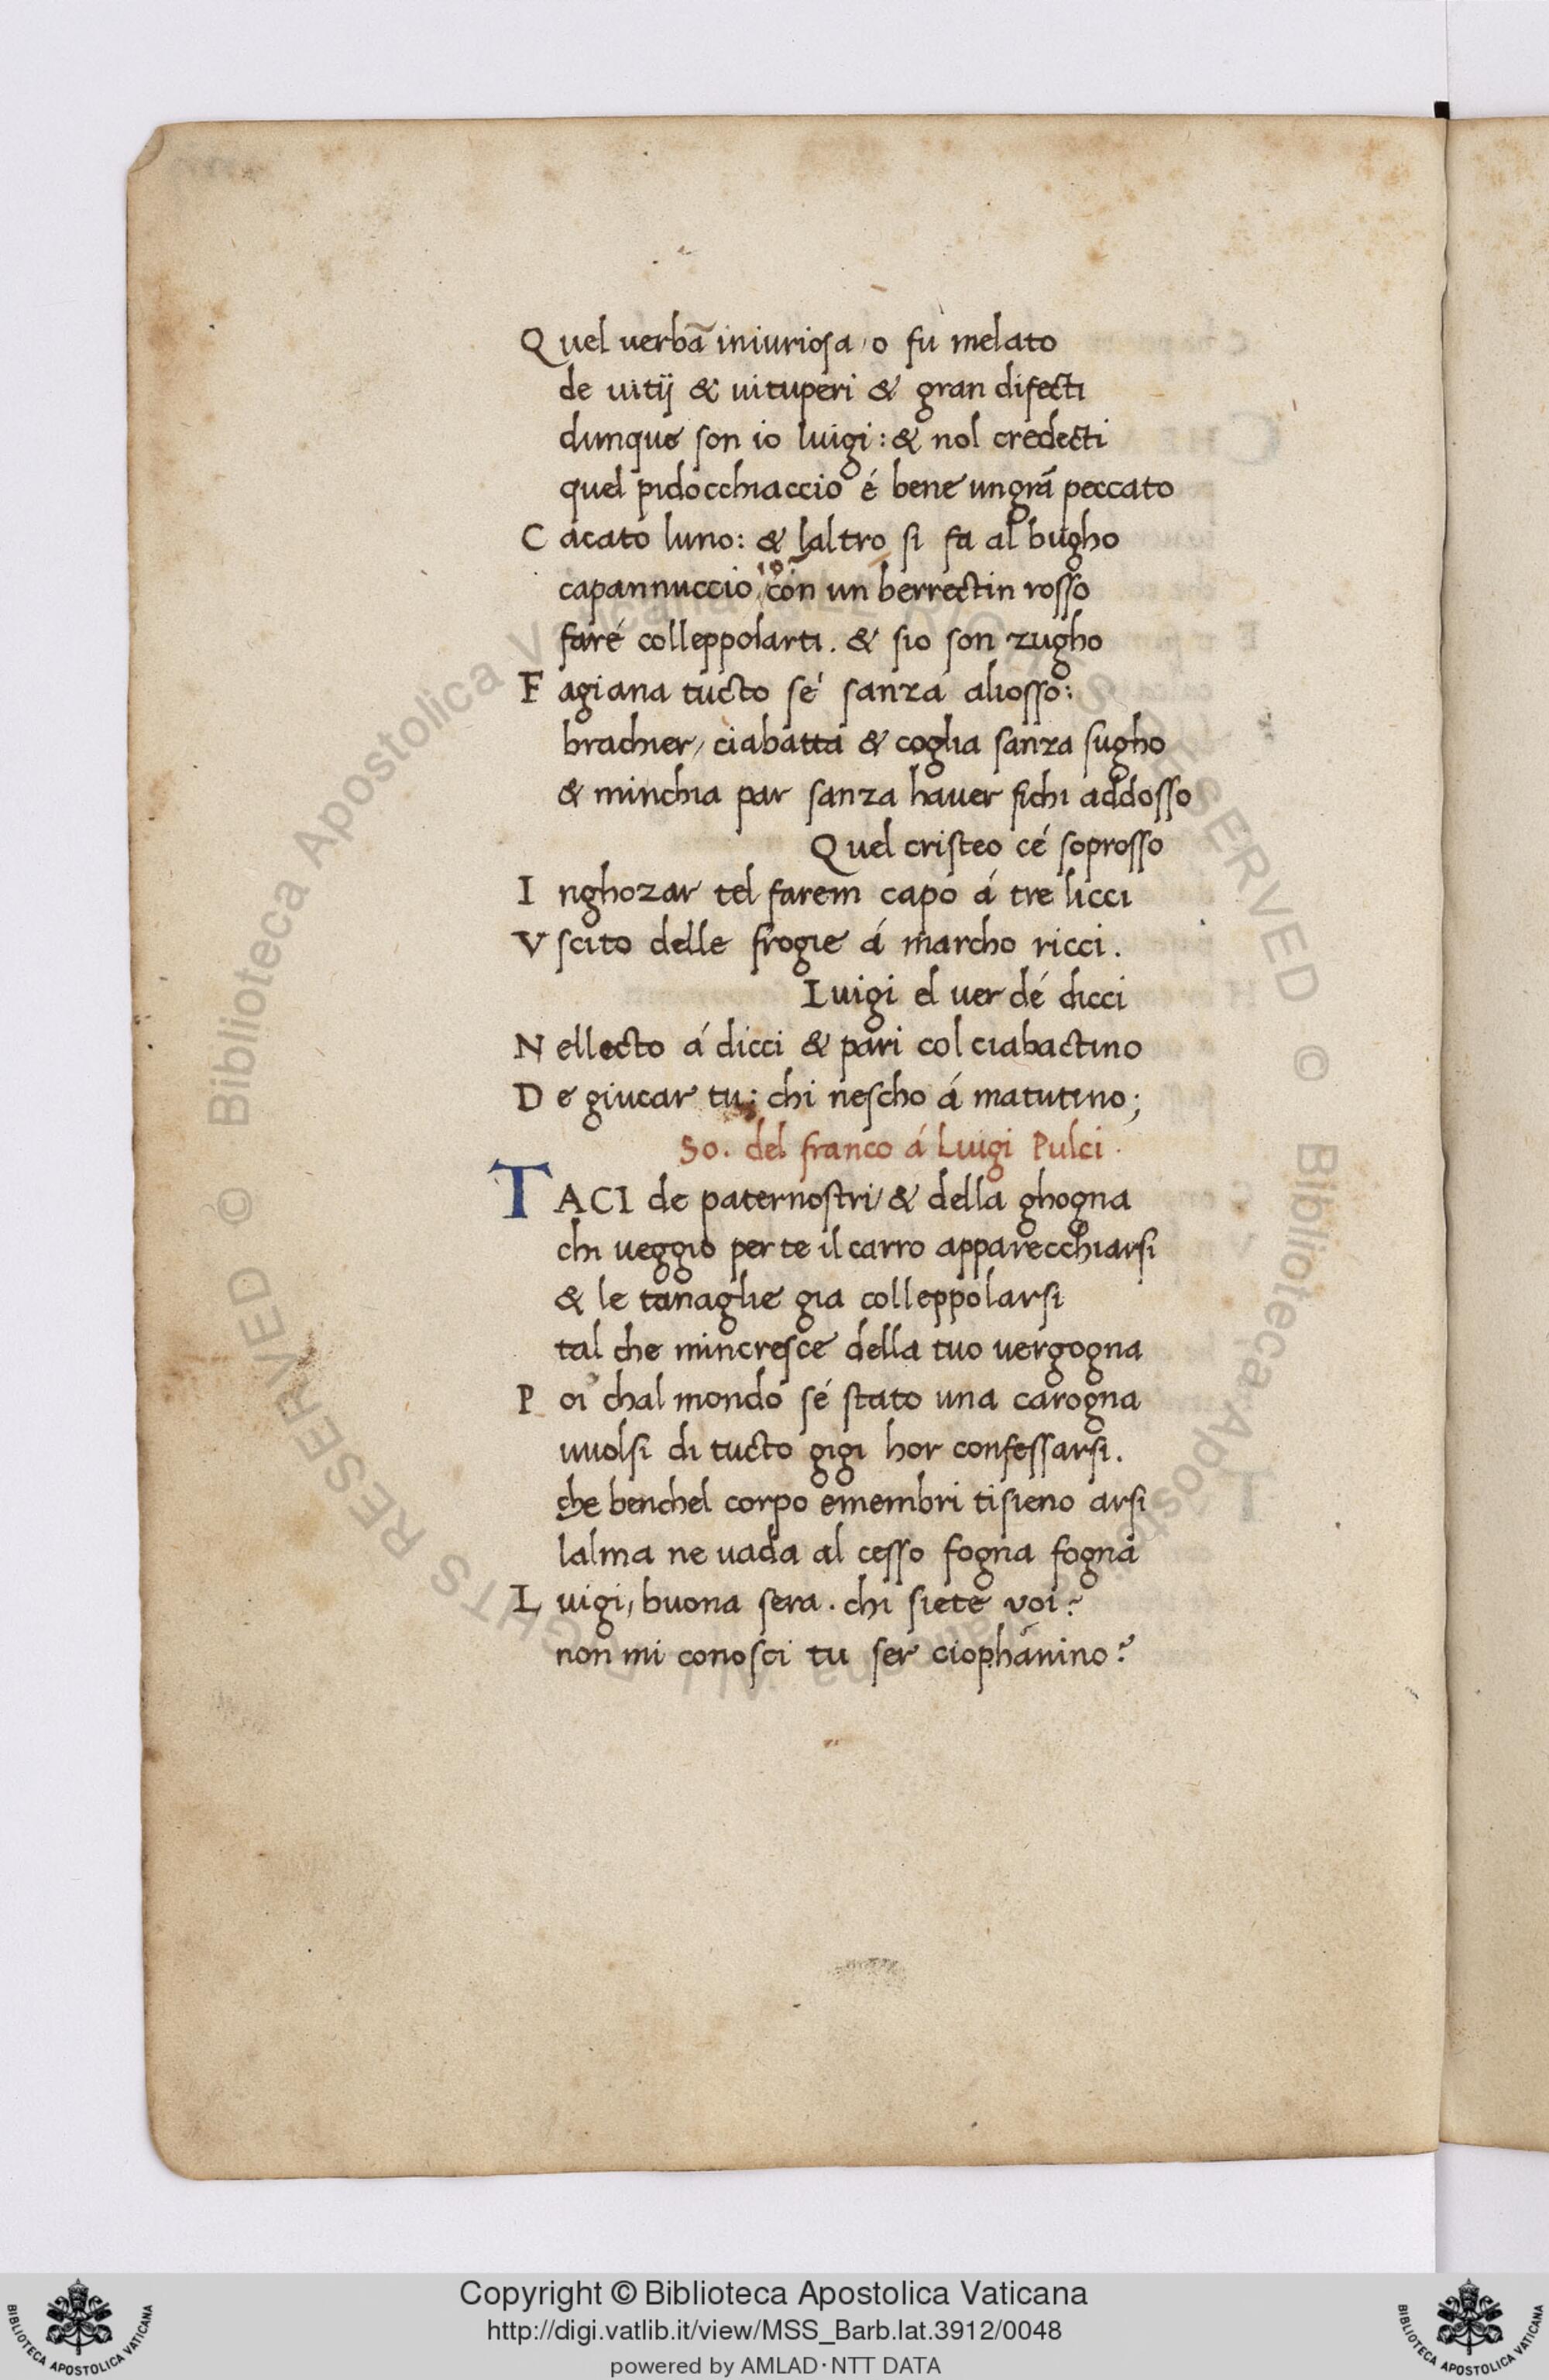 Quel uerbã iniuriosa / o fu melato
de uitij & uituperi & gran difecti
dunque son io luigi: & nol credecti
quel pidocchiaccio é bene un grã peccato
Cacato luno: & laltro si fa al bugho
capannuccio, con un berrectin rosso
faré colleppolarti. & sio son zugho
Fagiana tucto sé sanza aliosso:
brachier / ciabatta & coglia sanza sugho
& minchia par sanza hauer fichi addosso
Quel cristeo cé soprosso
Inghozar tel farem capo á tre licci
Vscito delle frogie á marcho ricci.
Luigi el uer dé dicci
Nellecto á dicci & pari col ciabactino
De giucar tu: chi nescho á matutino;
So. del franco á Luigi Pulci.
TACI de paternostri / & della ghogna
chi ueggio per te il carro apparecchiarsi
& le tanaglie gia colleppolarsi
tal che mincresce della tuo uergogna
Poi chal mondo sé stato una carogna
uuolsi di tucto gigi hor confessarsi.
che benchel corpo emembri tisieno arsi
lalma ne uada al cesso fogna fogna
Luigi, buona sera. chi siete voi?
non mi conosci tu ser ciophanino?
© Biblioteca Apostolica Vaticana ALL RIGHTS RESERVED
Copyright © Biblioteca Apostolica Vaticana
http://digi.vatlib.it/view/MSS_Barb.lat.3912/0048
powered by AMLAD·NTT DATA
BIBLIOTECA APOSTOLICA VATICANA
BIBLIOTECA APOSTOLICA VATICANA